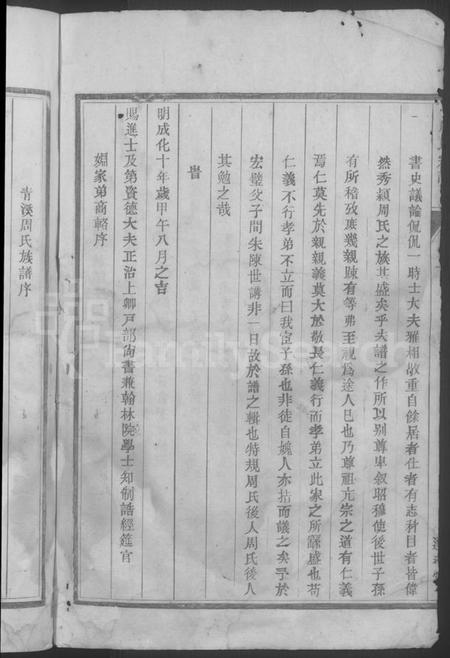 書史議論侃侃一時士大夫雅相敬重自餘居者仕者有志科目者皆偉
然秀頴周氏之族其盛矣乎夫譜之作所以别尊卑叙昭穆使後世子孫
有所稽攷庶幾親踈有等弗至視爲途人巳也乃尊祖亢宗之道有仁義
焉仁莫先於親親義莫大於敬長仁義行而孝弟立此家之所繇盛也苟
仁義不行孝弟不立而曰我宦子孫也非徒自媿人亦掎而議之矣予於
宏璧父子間朱陳世講非一日故於譜之輯也特規周氏後人周氏後人
其勉之哉
旹
明成化十年歲甲午八月之吉
賜進士及第資德大夫正治上卿戸部尙書兼翰林院學士知制誥經筵官
婣家弟商輅序
青溪周氏族譜序